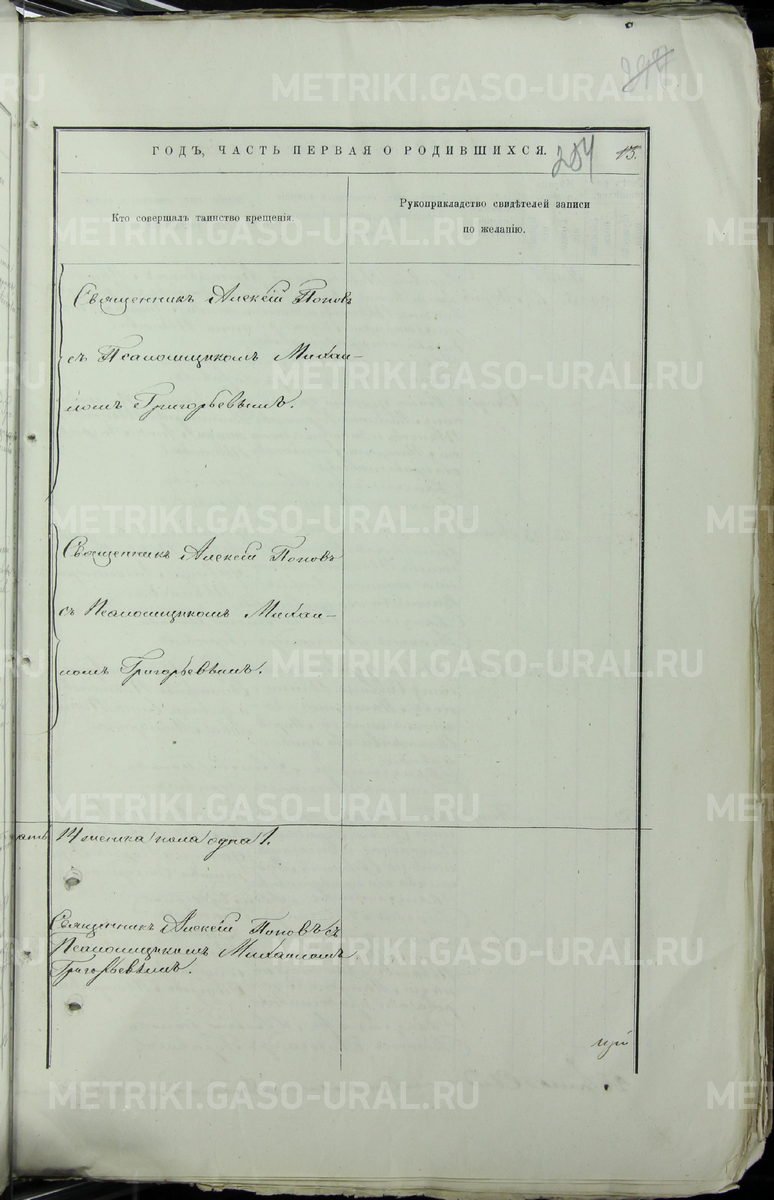 297
ГОДЪ, ЧАСТЬ ПЕРВАЯ О РОДИВШИХСЯ.
204
13.
Кто совершалъ таинство крещенія.
Рукоприкладство свидѣтелей записи
по желанію.
Священникъ Алексій Поповъ
съ Псаломщикомъ Михаи-
ломъ Григорьевымъ.
Священникъ Алексій Поповъ
съ Псаломщикомъ Михаи-
ломъ Григорьевымъ.
14 женска пола одна 1.
Священникъ Алексій Поповъ съ
Псаломщикомъ Михаиломъ
Григорьевымъ.
METRIKI.GASO-URAL.RU